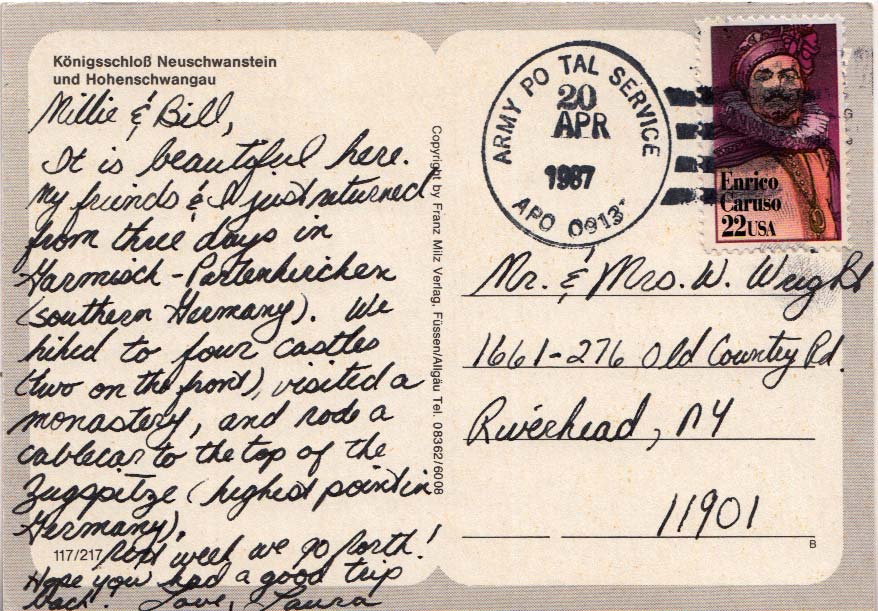 Königsschloß Neuschwanstein
und Hohenschwangau
Millie & Bill,
It is beautiful here.
My friends & I just returned
from three days in
Garmisch-Partenkirchen
(southern Germany). We
hiked to four castles
(two on the front), visited a
monastery, and rode a
cablecar to the top of the
Zugspitze (highest point in
Germany).
117/217
Next week we go north!
Hope you had a good trip
back! Love, Laura
Copyright by Franz Milz Verlag, Füssen/Allgäu Tel. 08362/6008
ARMY PO TAL SERVICE
20
APR
1987
APO 0913
Enrico
Caruso
22USA
Mr. & Mrs. W. Wright
1661-276 Old Country Rd.
Riverhead, NY
11901
B